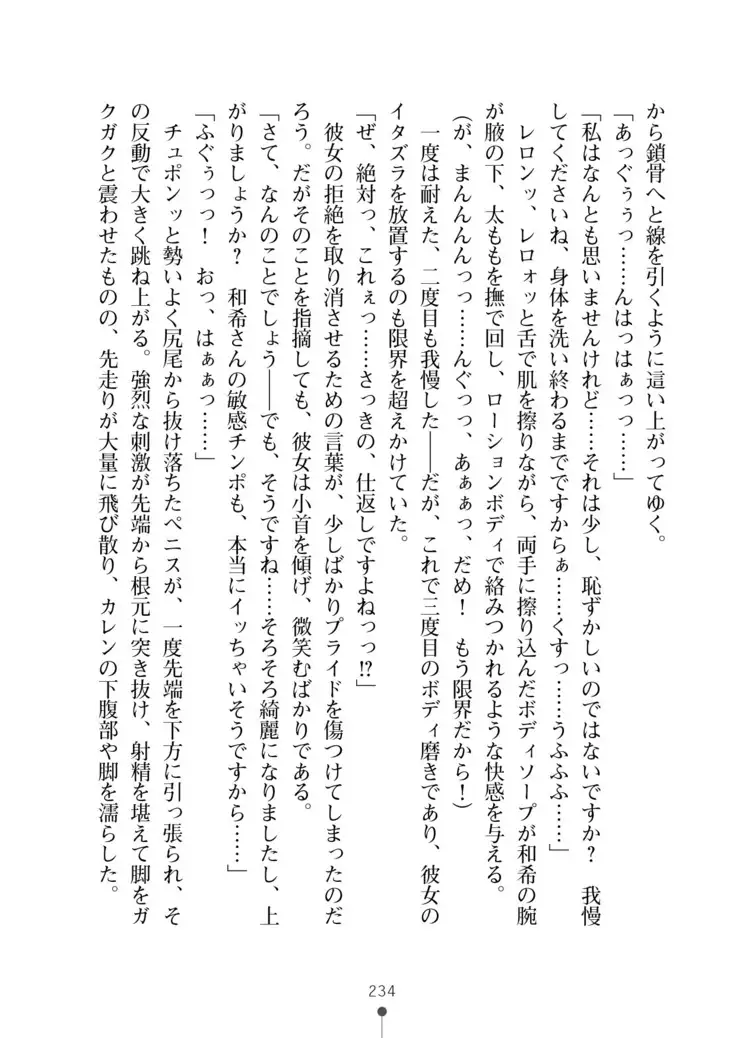 から鎖骨へと線を引くように這い上がってゆく。
「あっぐぅぅっ……んはっはぁっっ……」
「私はなんとも思いませんけれど……それは少し、恥ずかしいのではないですか？　我慢
してくださいね、身体を洗い終わるまでですからぁ……くすっ……うふふふ……」
　レロンッ、レロォッと舌で肌を擦りながら、両手に擦り込んだボディソープが和希の腕
が腋の下、太ももを撫で回し、ローションボディで絡みつかれるような快感を与える。
(が、まんんんんっっ……んぐっっ、あぁぁっ、だめ！　もう限界だから！)
　一度は耐えた、二度目も我慢した――だが、これで三度目のボディ磨きであり、彼女の
イタズラを放置するのも限界を超えかけていた。
「ぜ、絶対っ、これぇっ……さっきの、仕返しですよねっっ!?」
　彼女の拒絶を取り消させるための言葉が、少しばかりプライドを傷つけてしまったのだ
ろう。だがそのことを指摘しても、彼女は小首を傾げ、微笑むばかりである。
「さて、なんのことでしょう――でも、そうですね……そろそろ綺麗になりましたし、上
がりましょうか？　和希さんの敏感チンポも、本当にイッちゃいそうですから……」
「ふぐぅっっ！　おっ、はぁぁっ……」
　チュポンッと勢いよく尻尾から抜け落ちたペニスが、一度先端を下方に引っ張られ、そ
の反動で大きく跳ね上がる。強烈な刺激が先端から根元に突き抜け、射精を堪えて脚をガ
クガクと震わせたものの、先走りが大量に飛び散り、カレンの下腹部や脚を濡らした。
234